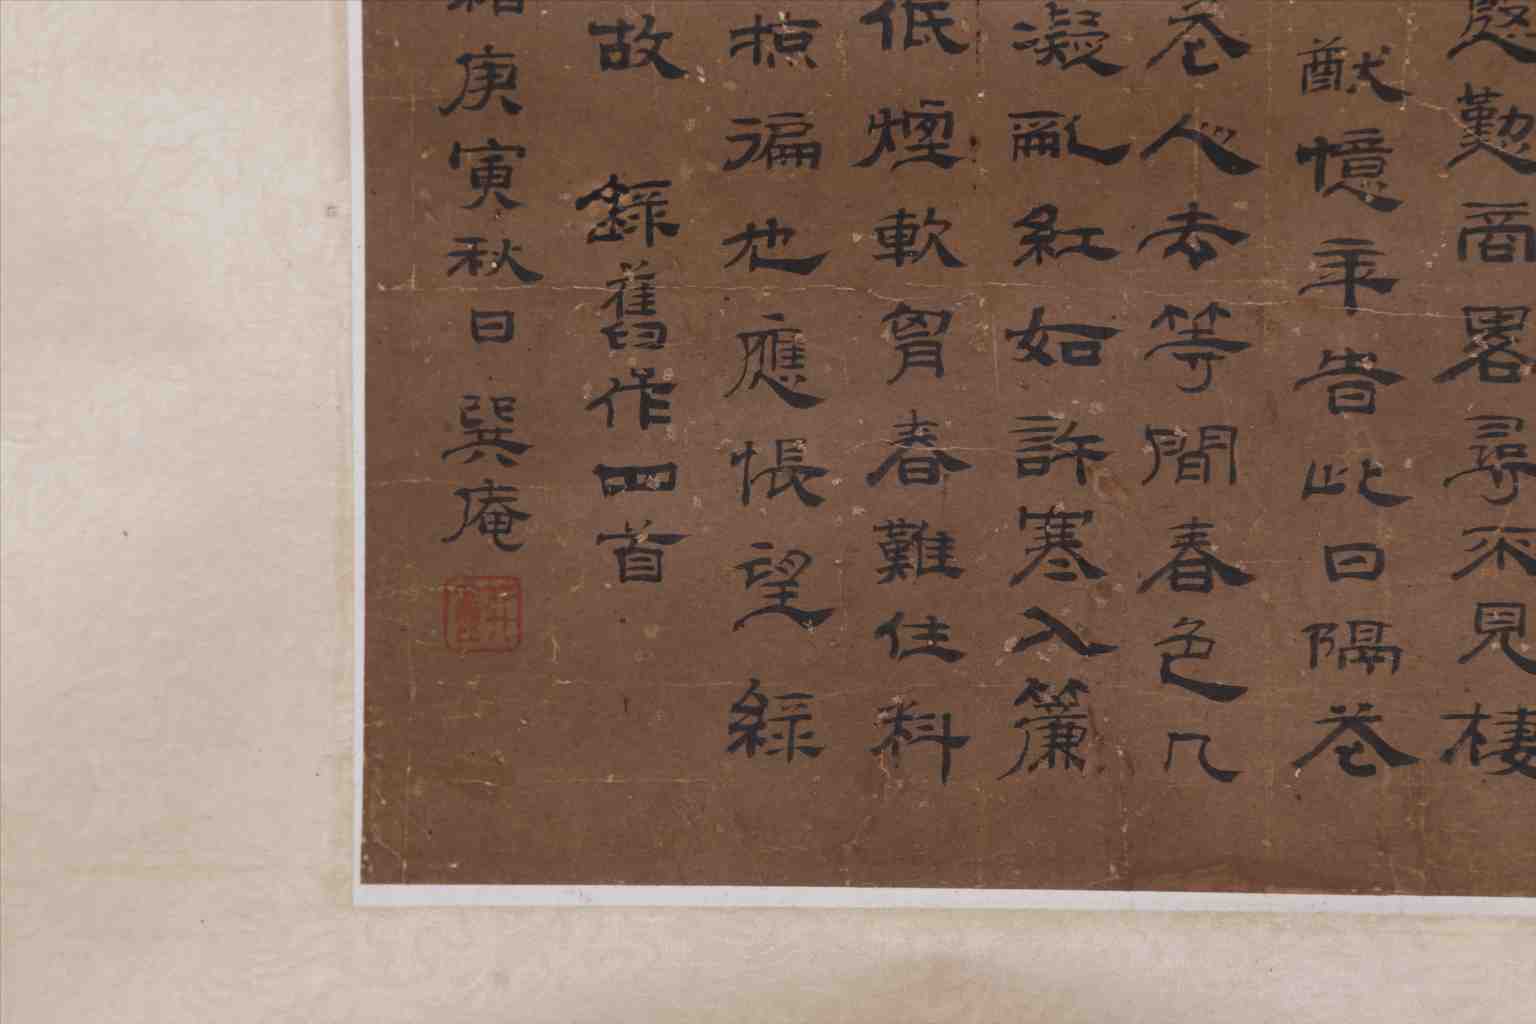 慇懃商畧尋不見棲
猷憶年昔此日隔花
花人去等閒春色几
凝亂紅如許寒入簾
低煙軟胷春難住料
掠徧也應悵望綠
故 錄舊作四首
緒庚寅秋日巽庵